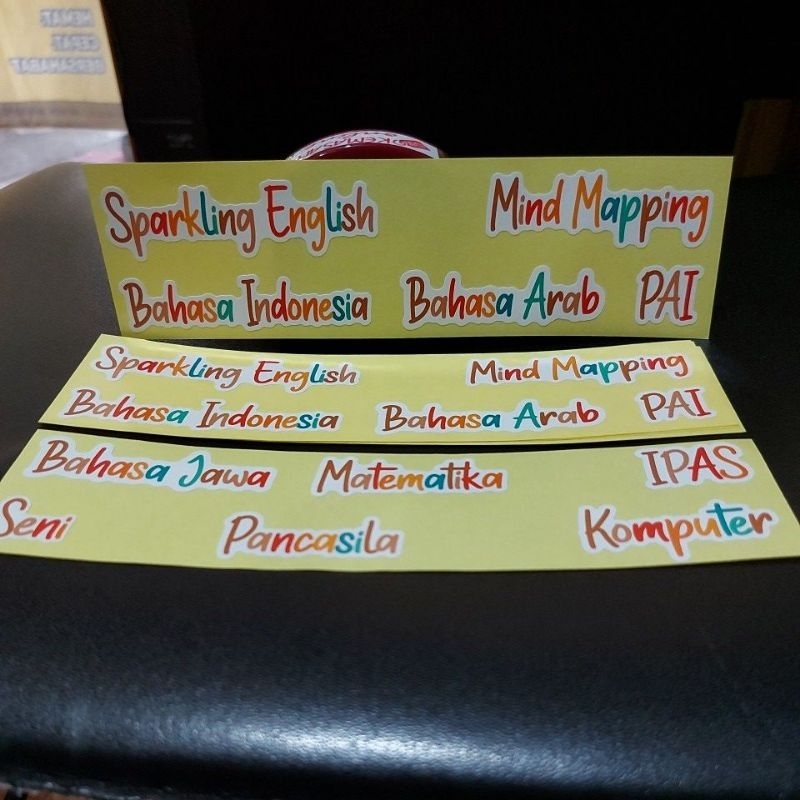 HEMAT
CEPAT
BERSAHABAT
Sparkling English Mind Mapping
Bahasa Indonesia Bahasa Arab PAI
Sparkling English Mind Mapping
Bahasa Indonesia Bahasa Arab PAI
Bahasa Jawa Matematika IPAS
Seni Pancasila Komputer